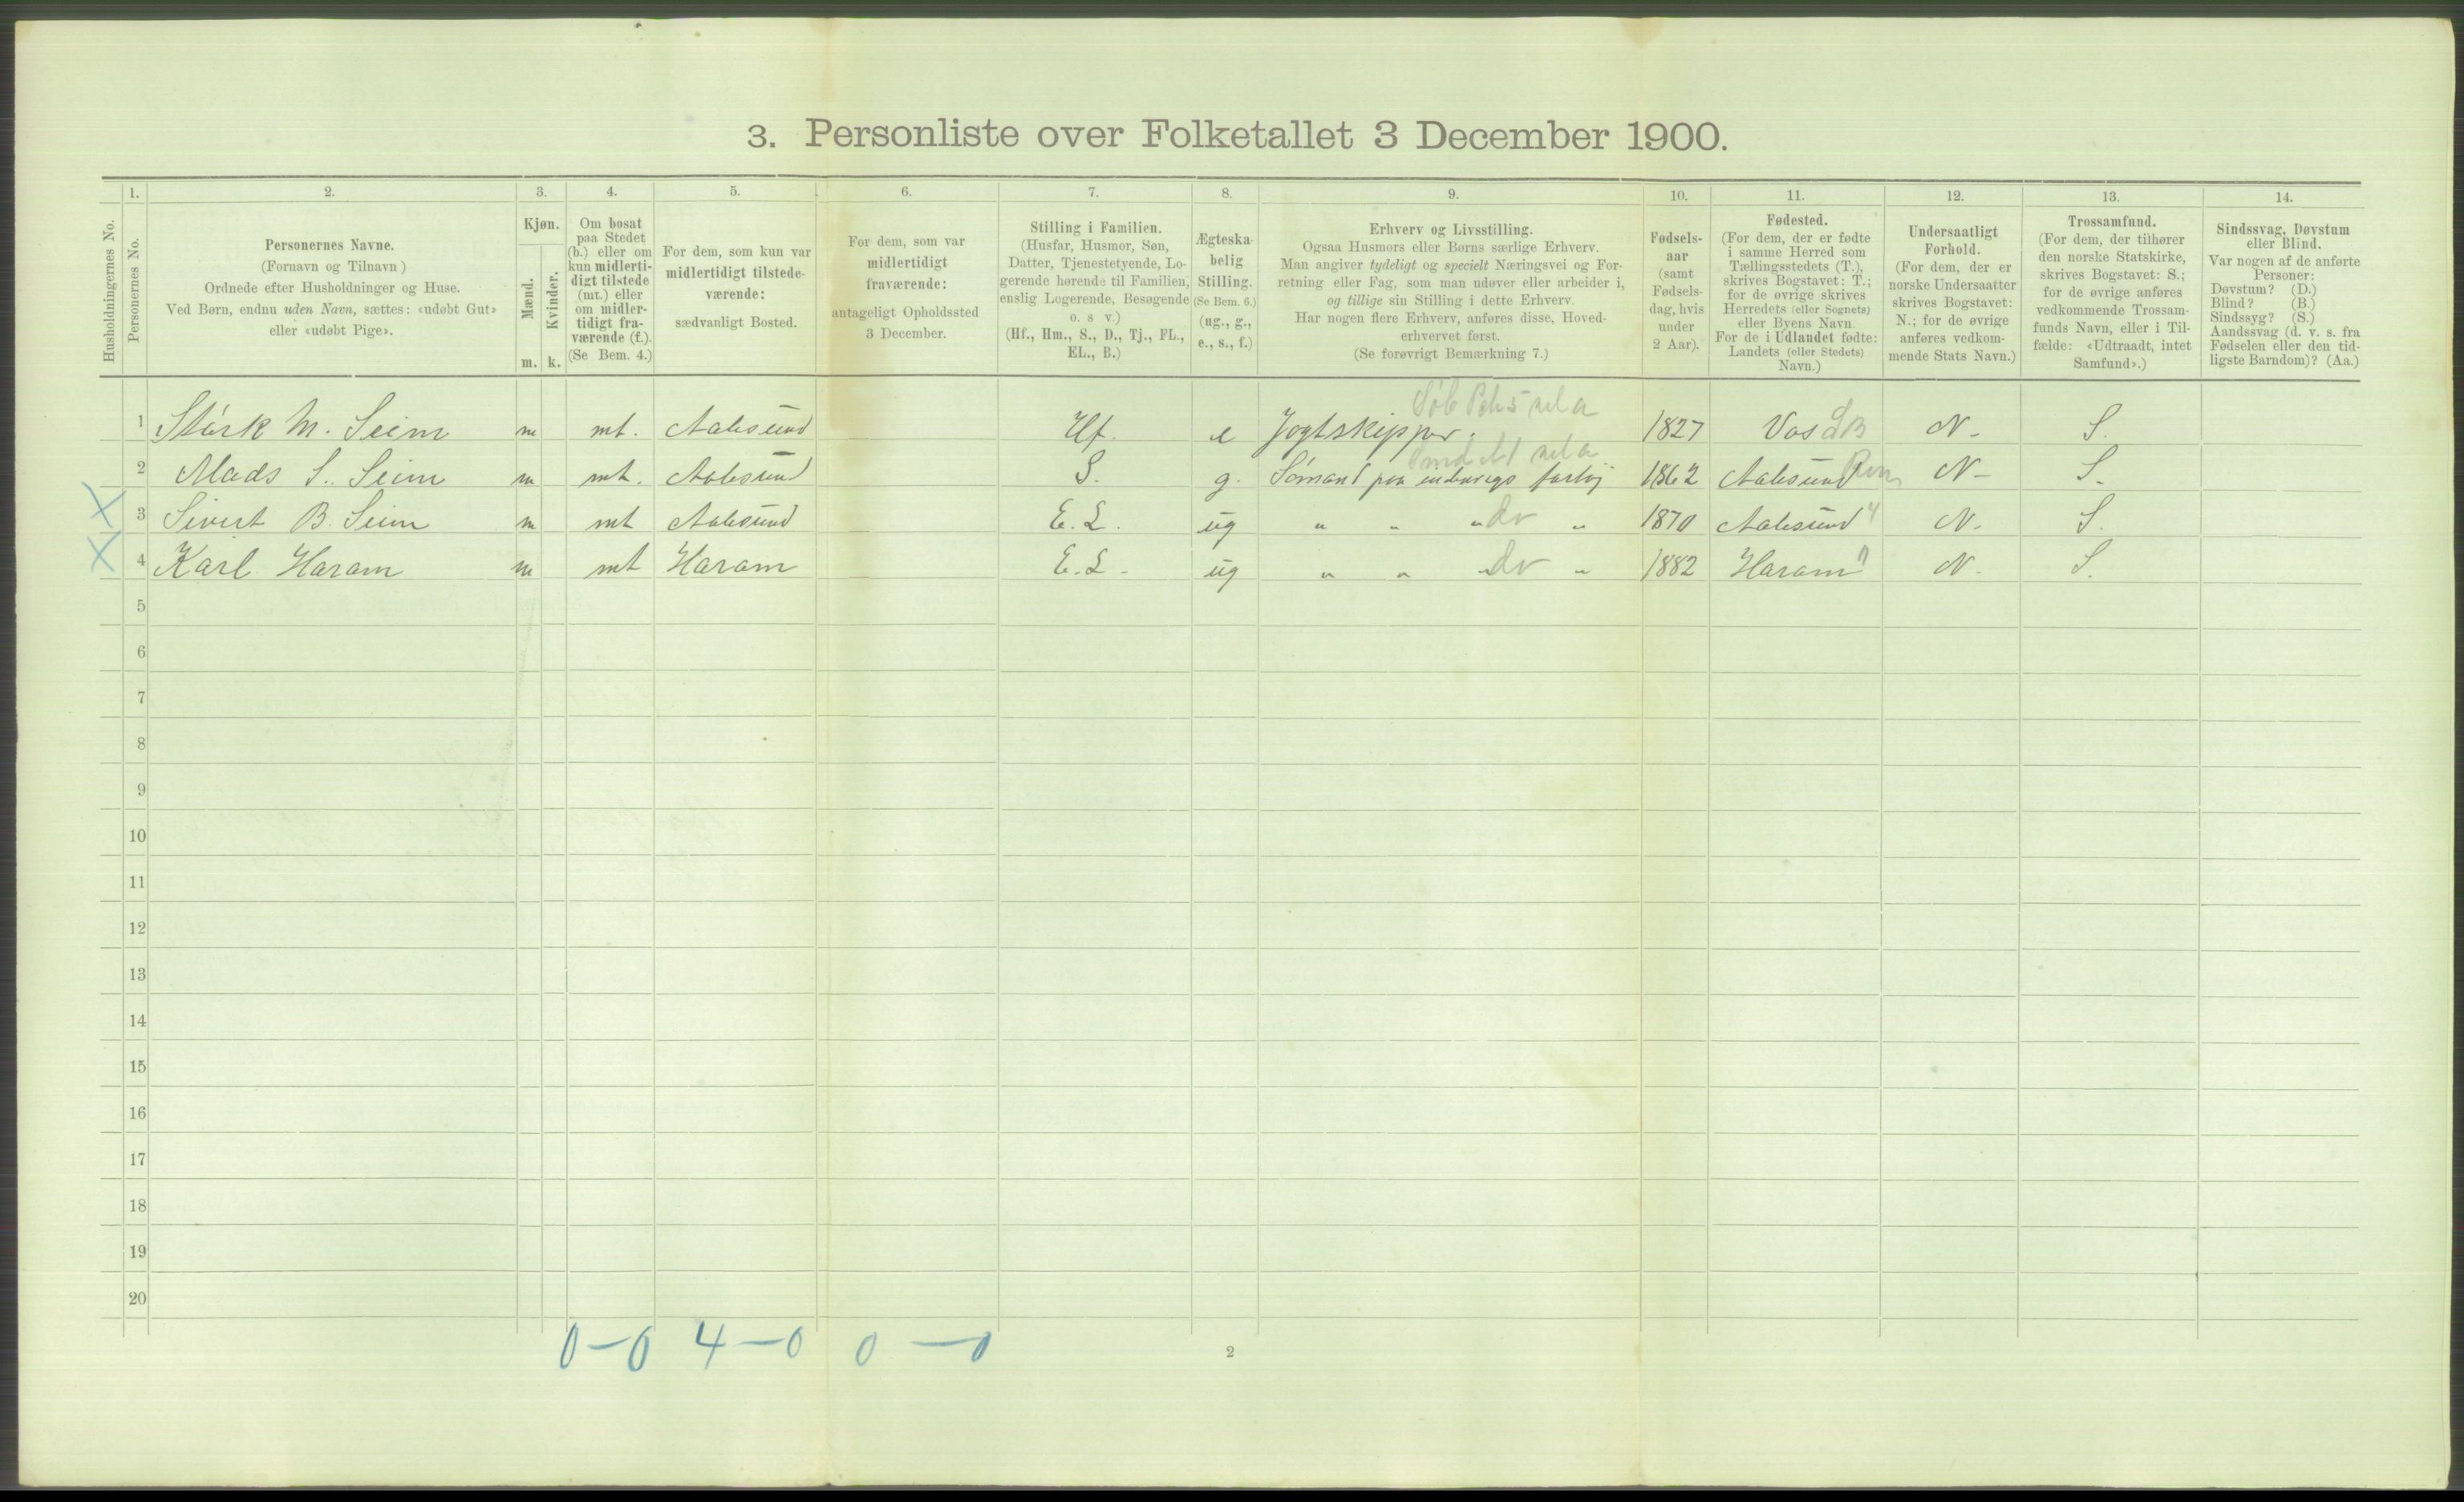 3. Personliste over Folketallet 3 December 1900.
1. 2. 3. 4. 5. 6. 7. 8. 9. 10. 11. 12. 13. 14.
Husholdningernes No.
Personernes No.
Personernes Navne.
(Fornavn og Tilnavn)
Ordnede efter Husholdninger og Huse.
Ved Børn, endnu uden Navn, sættes: «udøbt Gut»
eller «udøbt Pige».
Kjøn.
Mænd.
Kvinder.
m. k.
Om bosat
paa Stedet
(b.) eller om
kun midlerti-
digt tilstede
(mt.) eller
om midler-
tidigt fra-
værende (f.).
(Se Bem. 4.)
For dem, som kun var
midlertidigt tilstede-
værende:
sædvanligt Bosted.
For dem, som var
midlertidigt
fraværende:
antageligt Opholdssted
3 December.
Stilling i Familien.
(Husfar, Husmor, Søn,
Datter, Tjenestetyende, Lo-
gerende hørende til Familien,
enslig Logerende, Besøgende
o. s v.)
(Hf., Hm., S., D., Tj., FL.,
EL., B.)
Ægteska-
belig
Stilling.
(Se Bem. 6.)
(ug., g.,
e., s., f.)
Erhverv og Livsstilling.
Ogsaa Husmors eller Børns særlige Erhverv.
Man angiver tydeligt og specielt Næringsvei og For-
retning eller Fag, som man udøver eller arbeider i,
og tillige sin Stilling i dette Erhverv.
Har nogen flere Erhverv, anføres disse, Hoved-
erhvervet først.
(Se forøvrigt Bemærkning 7.)
Fødsels-
aar
(samt
Fødsels-
dag, hvis
under
2 Aar).
Fødested.
(For dem, der er fødte
i samme Herred som
Tællingsstedets (T.),
skrives Bogstavet: T.;
for de øvrige skrives
Herredets (eller Sognets)
eller Byens Navn.
For de i Udlandet fødte:
Landets (eller Stedets)
Navn.)
Undersaatligt
Forhold.
(For dem, der er
norske Undersaatter
skrives Bogstavet:
N.; for de øvrige
anføres vedkom-
mende Stats Navn.)
Trossamfund.
(For dem, der tilhører
den norske Statskirke,
skrives Bogstavet: S.;
for de øvrige anføres
vedkommende Trossam-
funds Navn, eller i Til-
fælde: «Udtraadt, intet
Samfund».)
Sindssvag, Døvstum
eller Blind.
Var nogen af de anførte
Personer:
Døvstum? (D.)
Blind? (B.)
Sindssyg? (S.)
Aandssvag (d. v. s. fra
Fødselen eller den tid-
ligste Barndom)? (Aa.)
1 Stúrk M. Seim m mt. Aalesund Hf. e Jagtskipper. 1827 Vos SB N- S.
2 Mads S. Seim m mt. Aalesund S. g. Sømand paa indenrigs fartøj 1862 Aalesund N- S.
X 3 Sivert B. Seim m mt Aalesund E. L. ug " " " do " 1870 Aalesund " N. S.
X 4 Karl Haram m mt Haram E. L. ug " " " do " 1882 Haram " N. S.
5
6
7
8
9
10
11
12
13
14
15
16
17
18
19
20
0-0 4-0 0-0
2